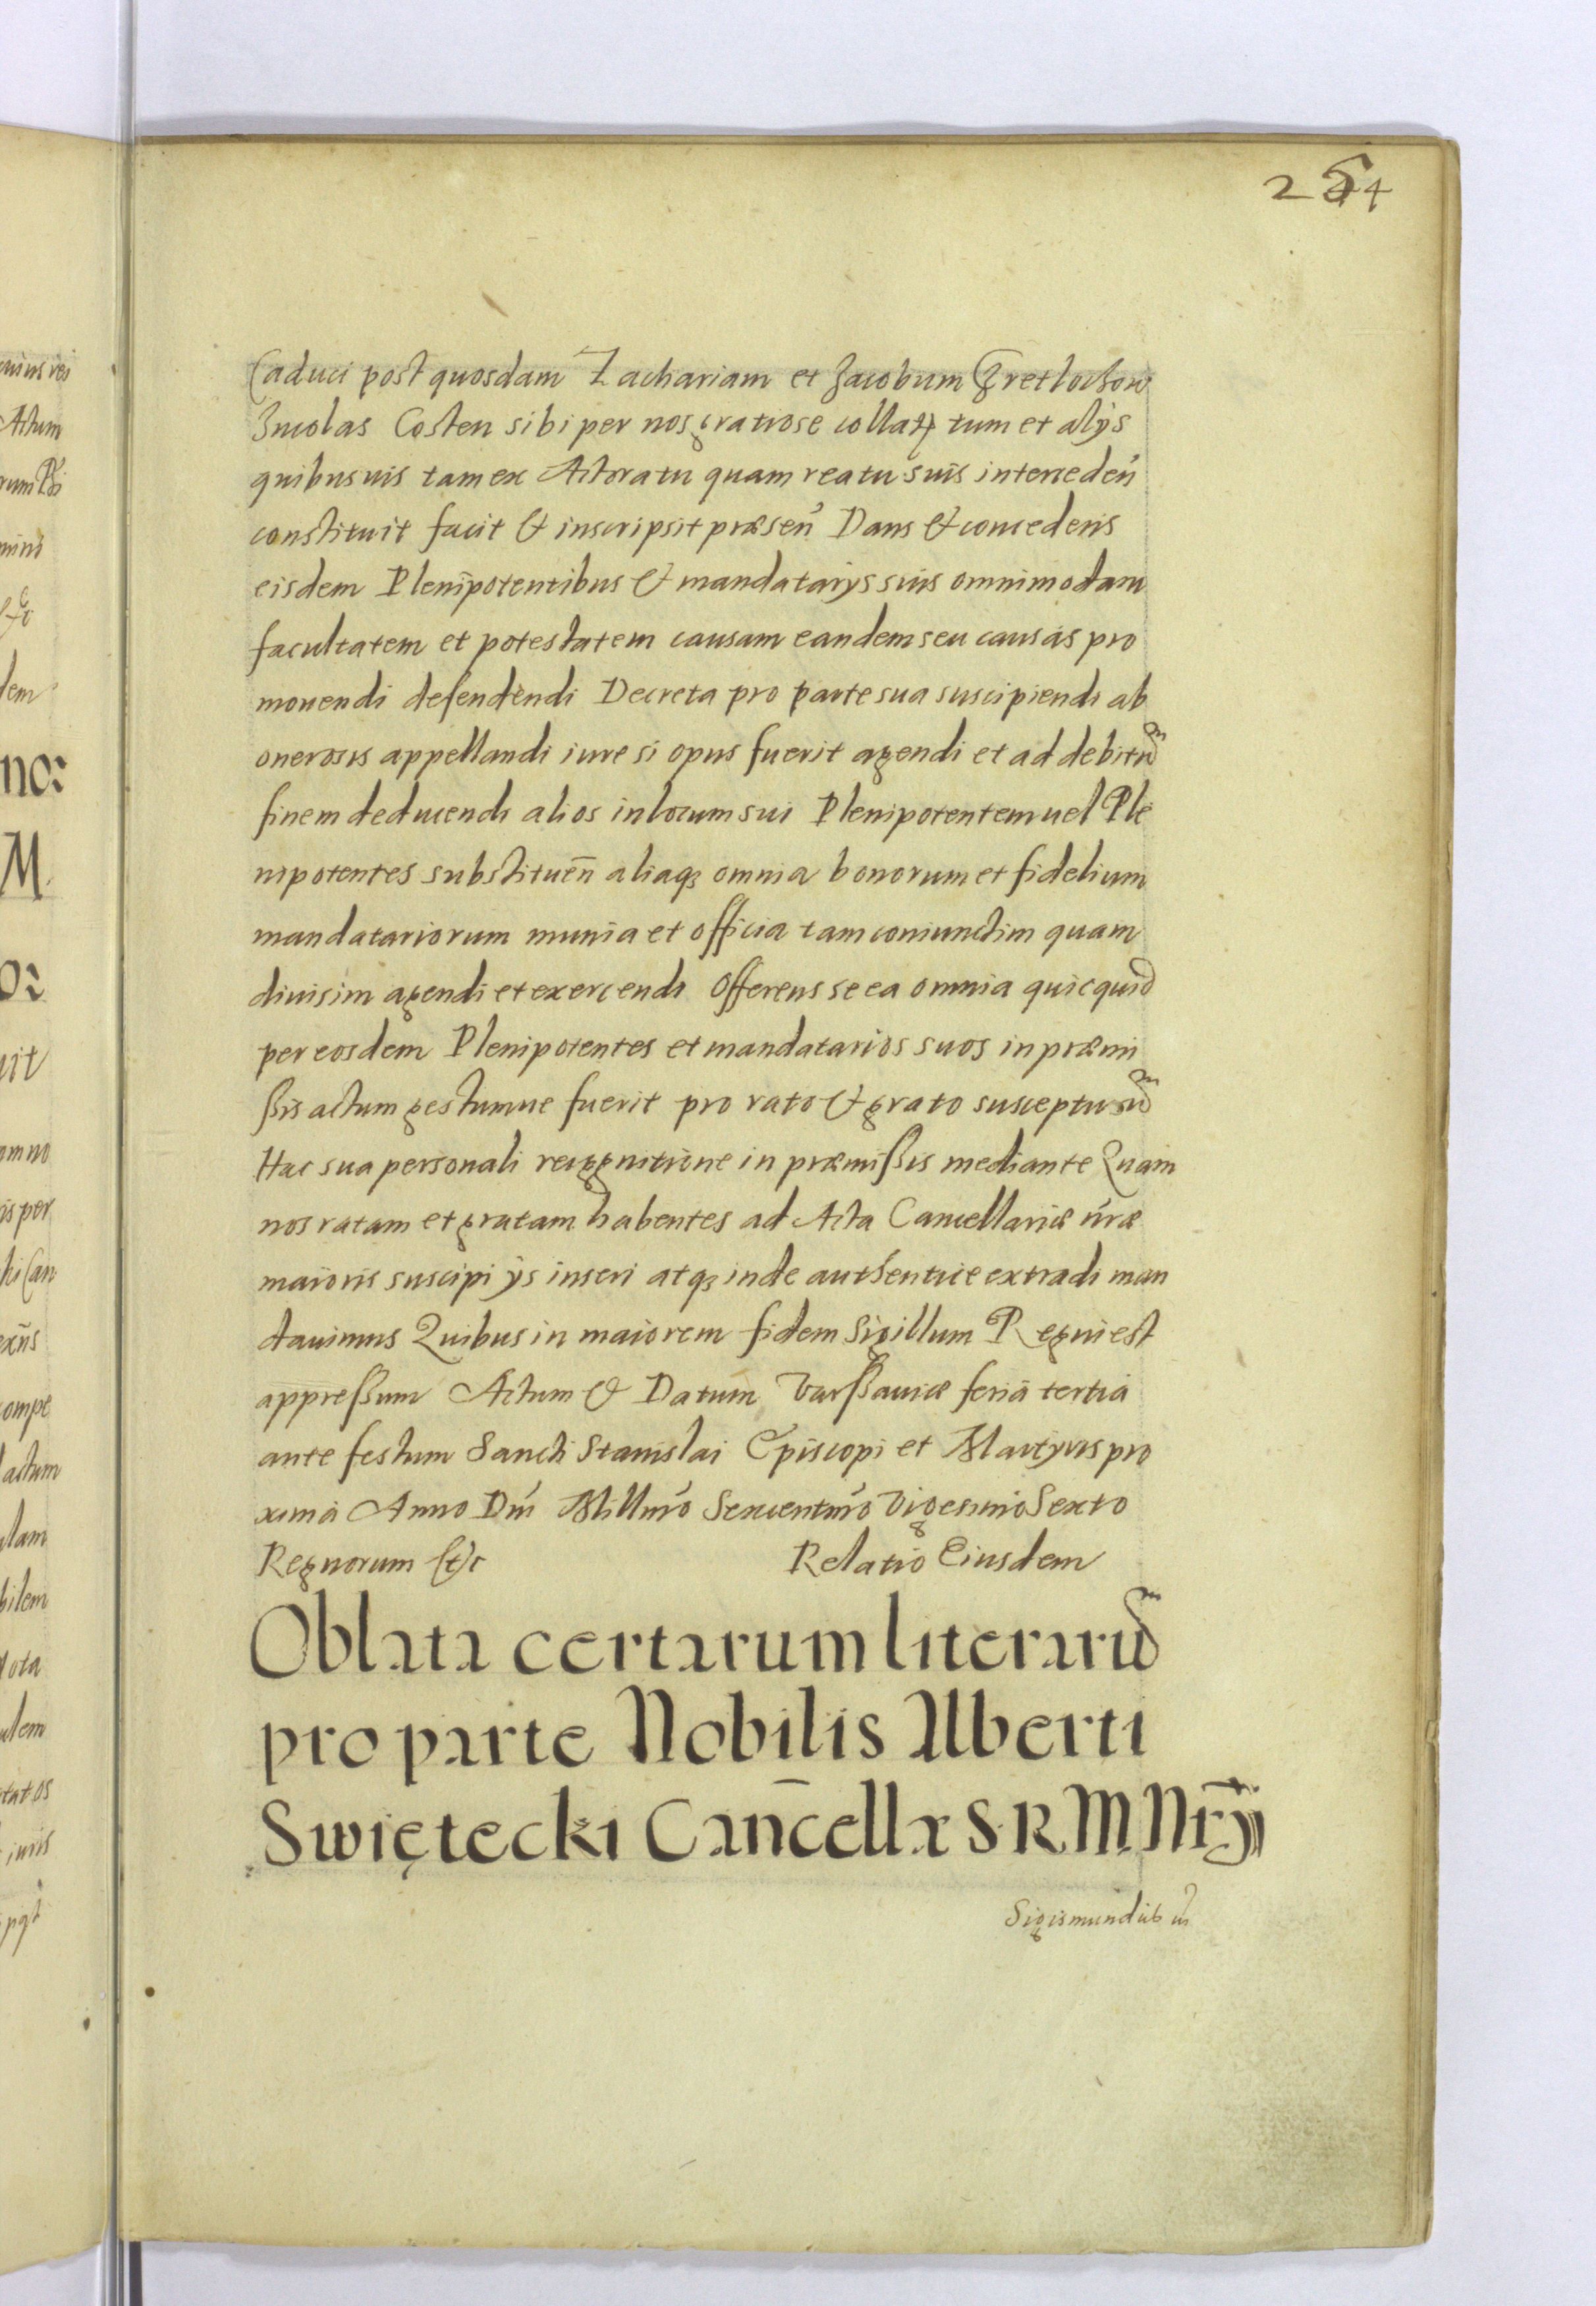 254
Caduci post quosdam Zachariam et Jacobum Gretlochow
Jncolas Costen sibi per nos gratiose collat tum et alÿs
quibusuis tam ex Actoratu quam reatu suis interceden̄
constituit facit & inscripsit præsen̄ Dans & concedens
eisdem Plenipotentibus & mandatarÿs suis omnimodam
facultatem et potestatem causam eandem seu causas pro
mouendi defendendi Decreta pro parte sua suscipiendi ab
onerosis appellandi iure si opus fuerit agendi et ad debitū
finem deducendi alios in locum sui Plenipotentem uel Ple
nipotentes substituen̄ aliaqʒ omnia bonorum et fidelium
mandatariorum munia et officia tam coniunctim quam
diuisim agendi et exercendi Offerens se ea omnia quicquid
per eosdem Plenipotentes et mandatarios suos in præmi
ßis actum gestumue fuerit pro rato & grato suscepturū
Hac sua personali recognitione in præmißis mediante Quam
nos ratam et gratam habentes ad Acta Cancellariæ n̄ræ
maioris suscipi ÿs inseri atqʒ inde authentice extradi man
dauimus Quibus in maiorem fidem Sigillum Regni est
appreßum Actum & Datum Varßauiæ feria tertia
ante festum Sancti Stanislai Episcopi et Martyris pro
xima Anno Dn̄i Millm̄o Sexcentm̄o Vigesimo Sexto
Regnorum &c Relatio Eiusdem
Oblata certarum literarū
pro parte Nobilis Alberti
Swiętecki Cancell̄a S.R.M Nr̄ÿ
Sigismundus